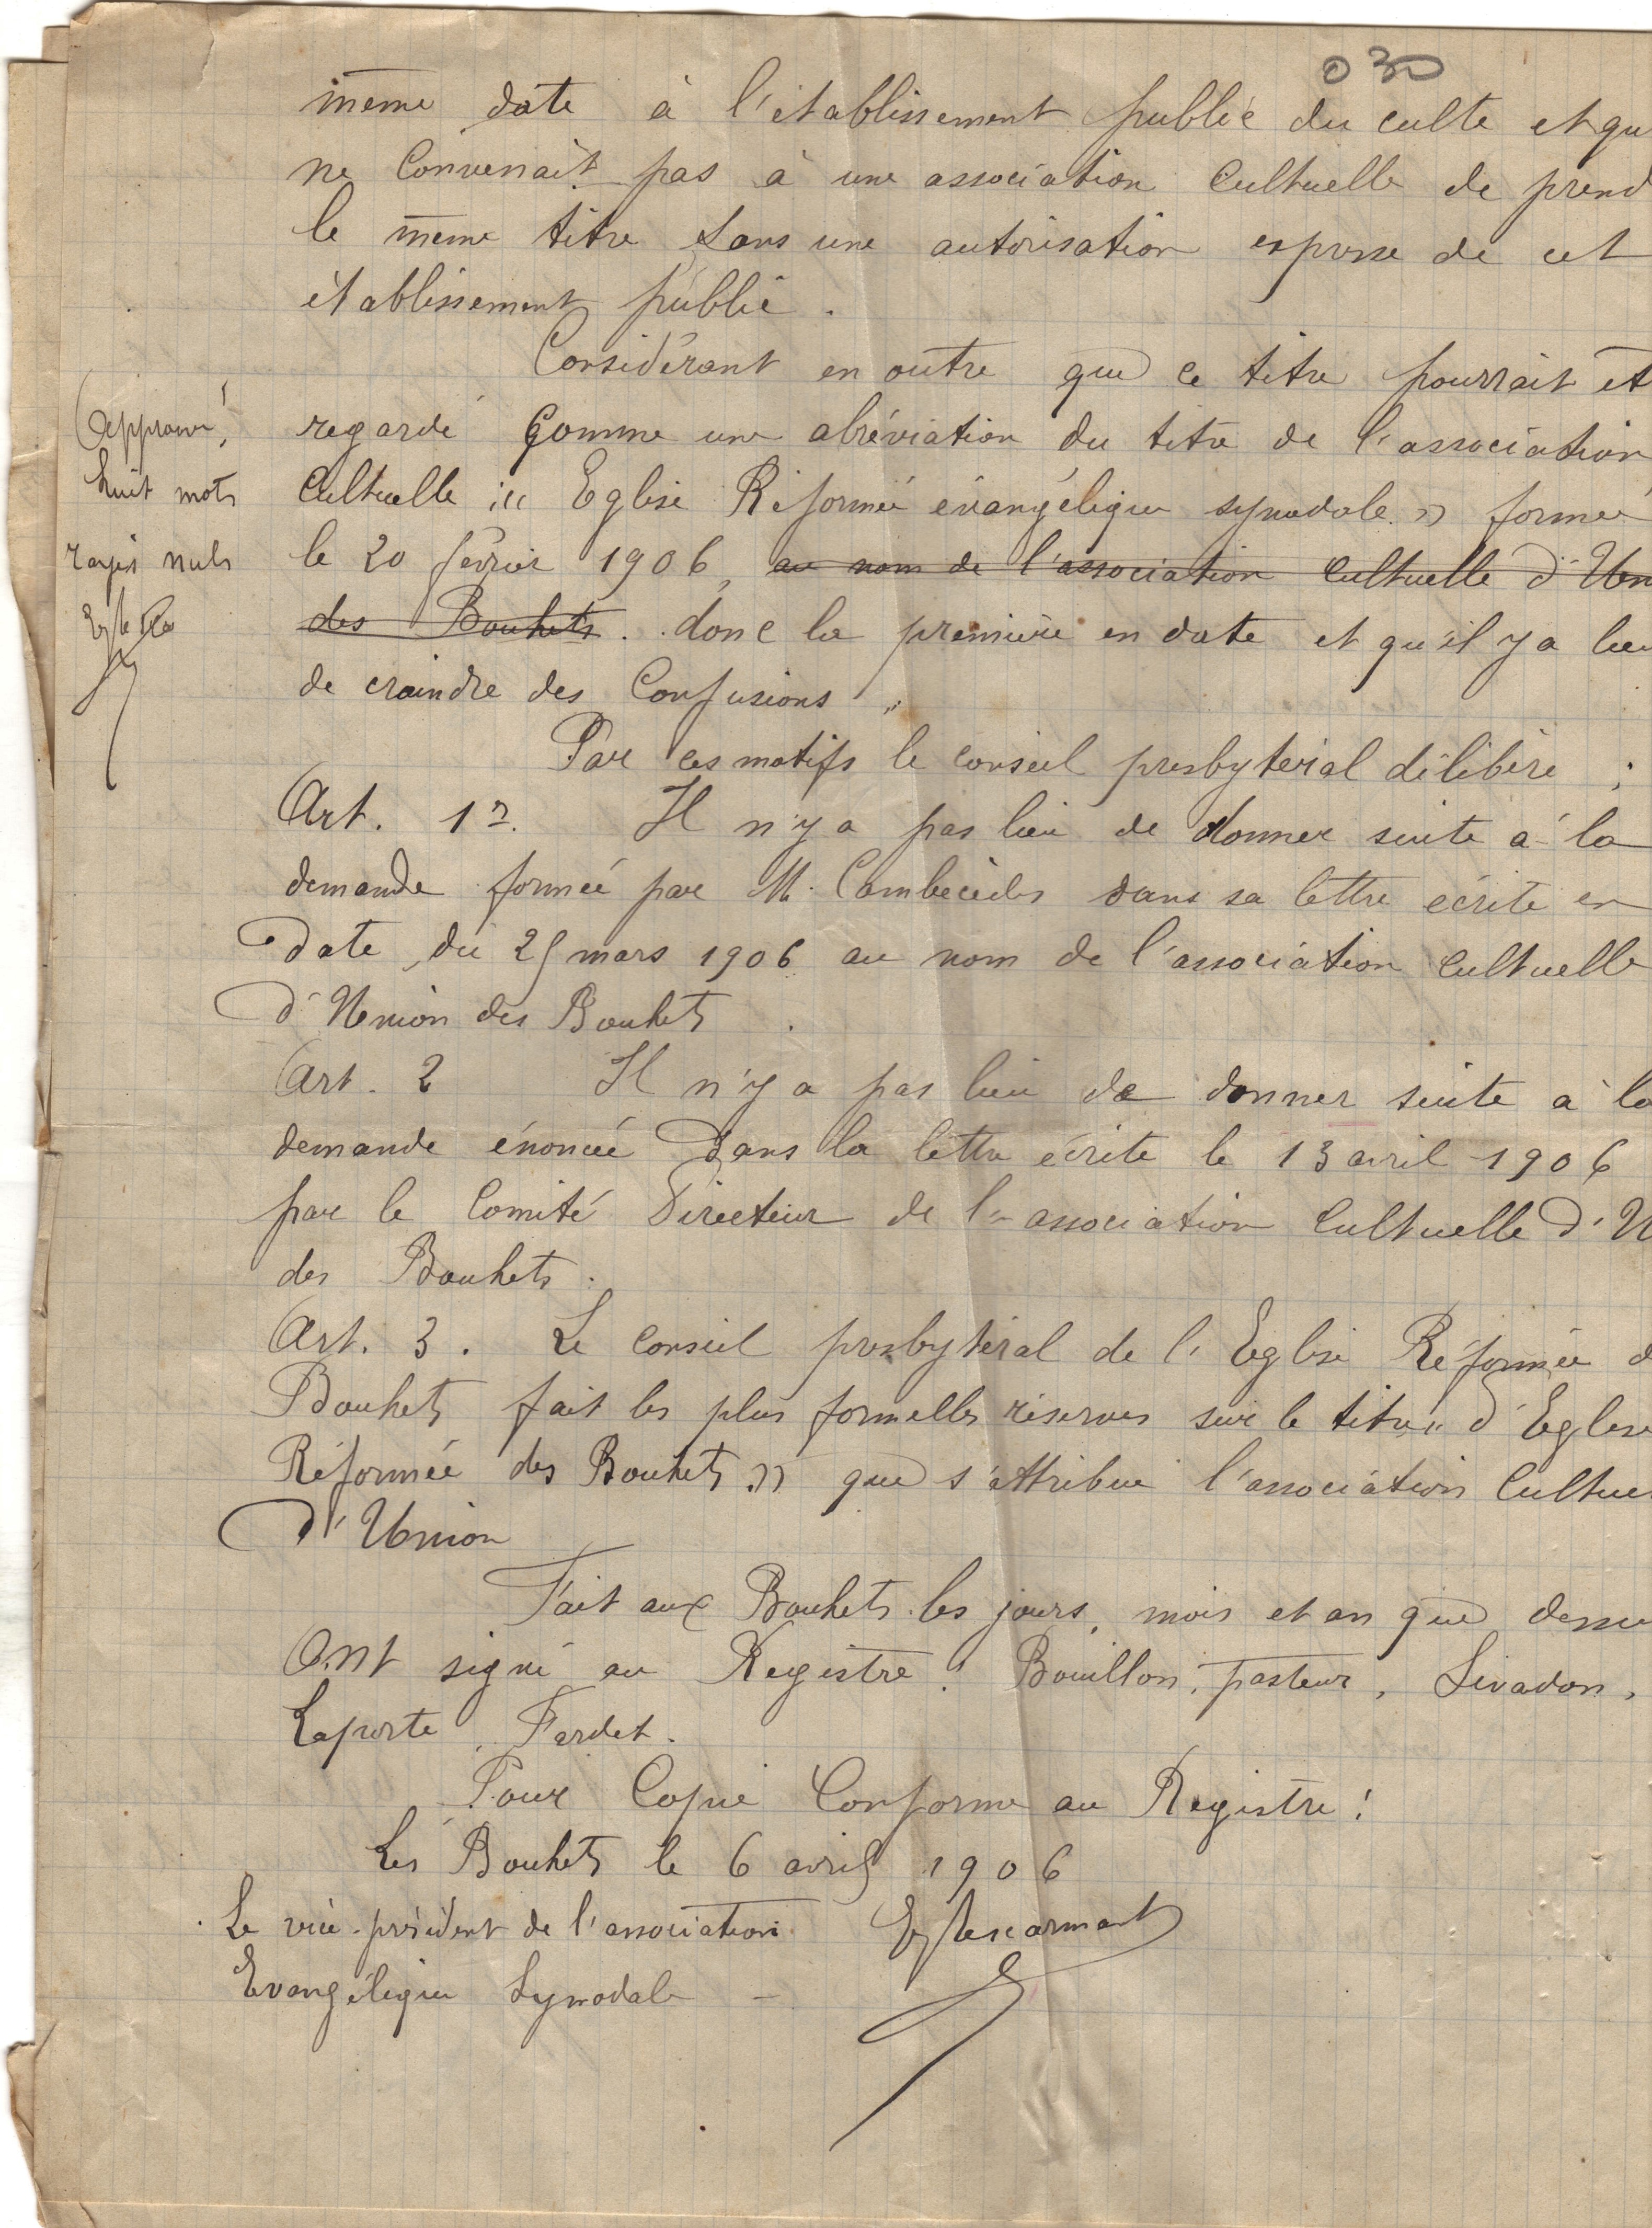 030
même date à l'établissement public du culte et qu
ne convenait pas à une association Cultuelle de prend
le même titre sans une autorisation expresse de cet
établissement public.
Considérant en outre que ce titre pourrait êt
regardé Comme une abréviation du titre de l'association
Cultuelle :" Eglise Réformée évangélique synodale » formée
le 20 février 1906, au nom de l'association Cultuelle d'Un
des Bouhets. donc la première en date et qu'il y a lieu
de craindre des Confusions
Approuvé,
huit mots
rayés nuls
Par ces motifs le conseil presbytéral délibère :
Art. 1er. Il n'y a pas lieu de donner suite à la
demande formée par M. dans sa lettre écrite en
date du 25 mars 1906 au nom de l'association Cultuelle
d'Union des Bouhets.
Art. 2 Il n'y a pas lieu de donner suite à la
demande énoncée dans la lettre écrite le 13 avril 1906
par le Comité Directeur de l'association Cultuelle d'U
des Bouhets.
Art. 3. Le Conseil presbytéral de l'Eglise Réformée d
Bouhets fait les plus formelles réserves sur le titre " d'Eglise
Réformée des Bouhets » que s'attribue l'association Cultue
d'Union
Fait aux Bouhets les jours, mois et an que dessu
Ont signé au Registre : Bouillon, pasteur, Livadon,
Laporte, Fardet.
Pour Copie Conforme au Registre :
Les Bouhets le 6 avril 1906
Le vice-président de l'association
Evangélique Synodale -